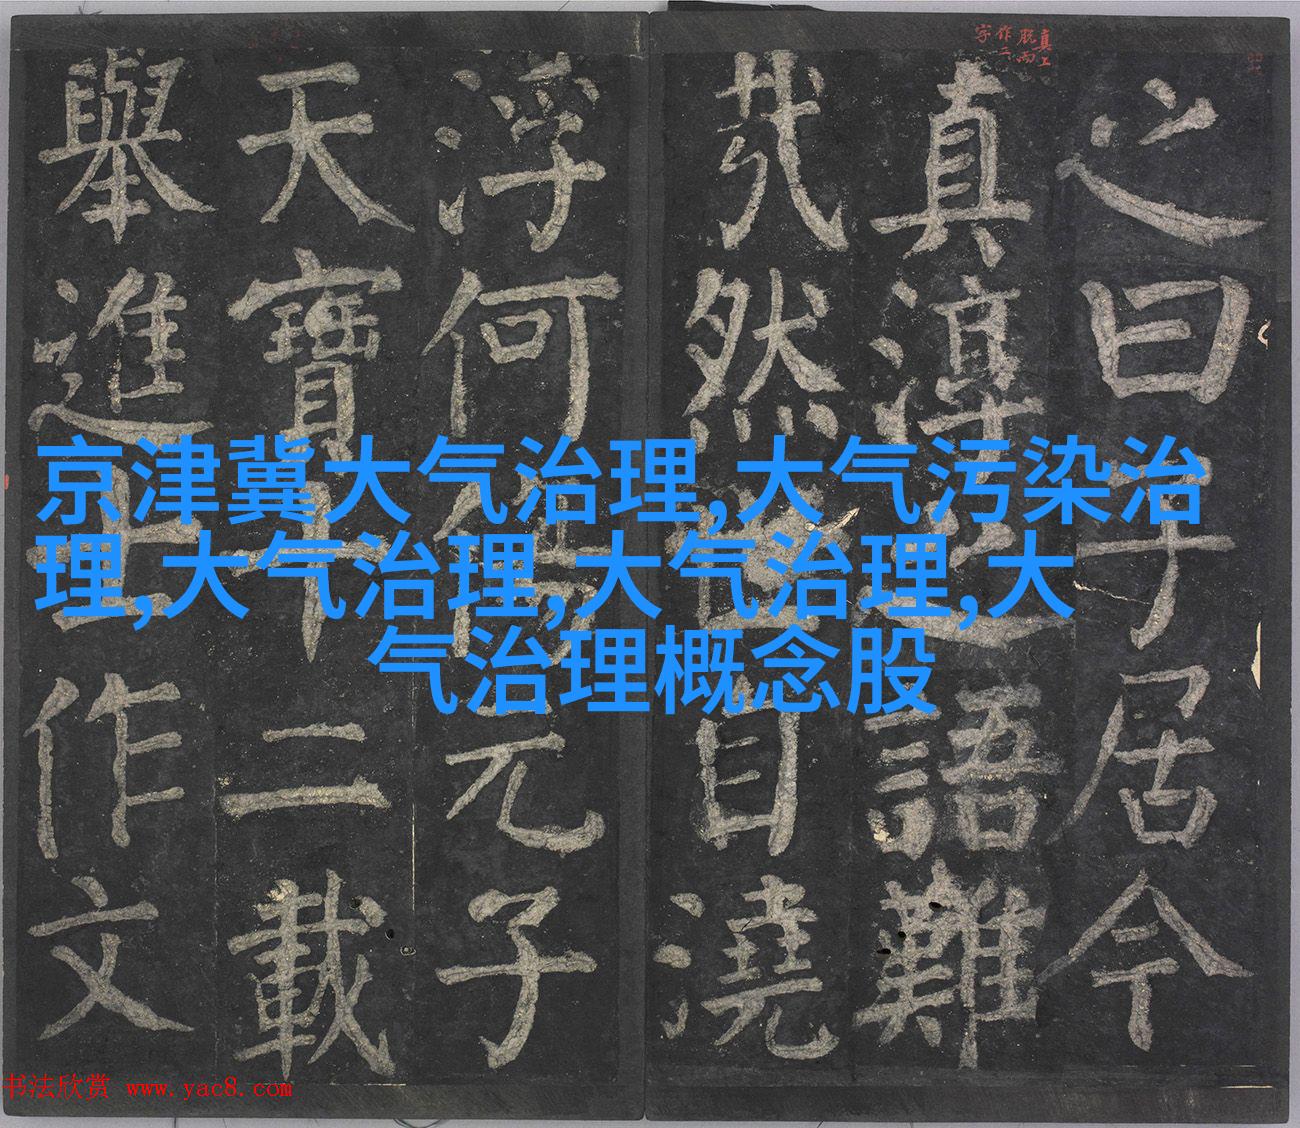 真上
脫而
作二
字
之曰子居今
真淳之語難
哉然世自澆
浮何傷元子
天寶十二載
舉進士作文
京津冀大气治理,大气污染治
理,大气治理,大气治理,大
气治理概念股
书法欣赏 www.yac8.com